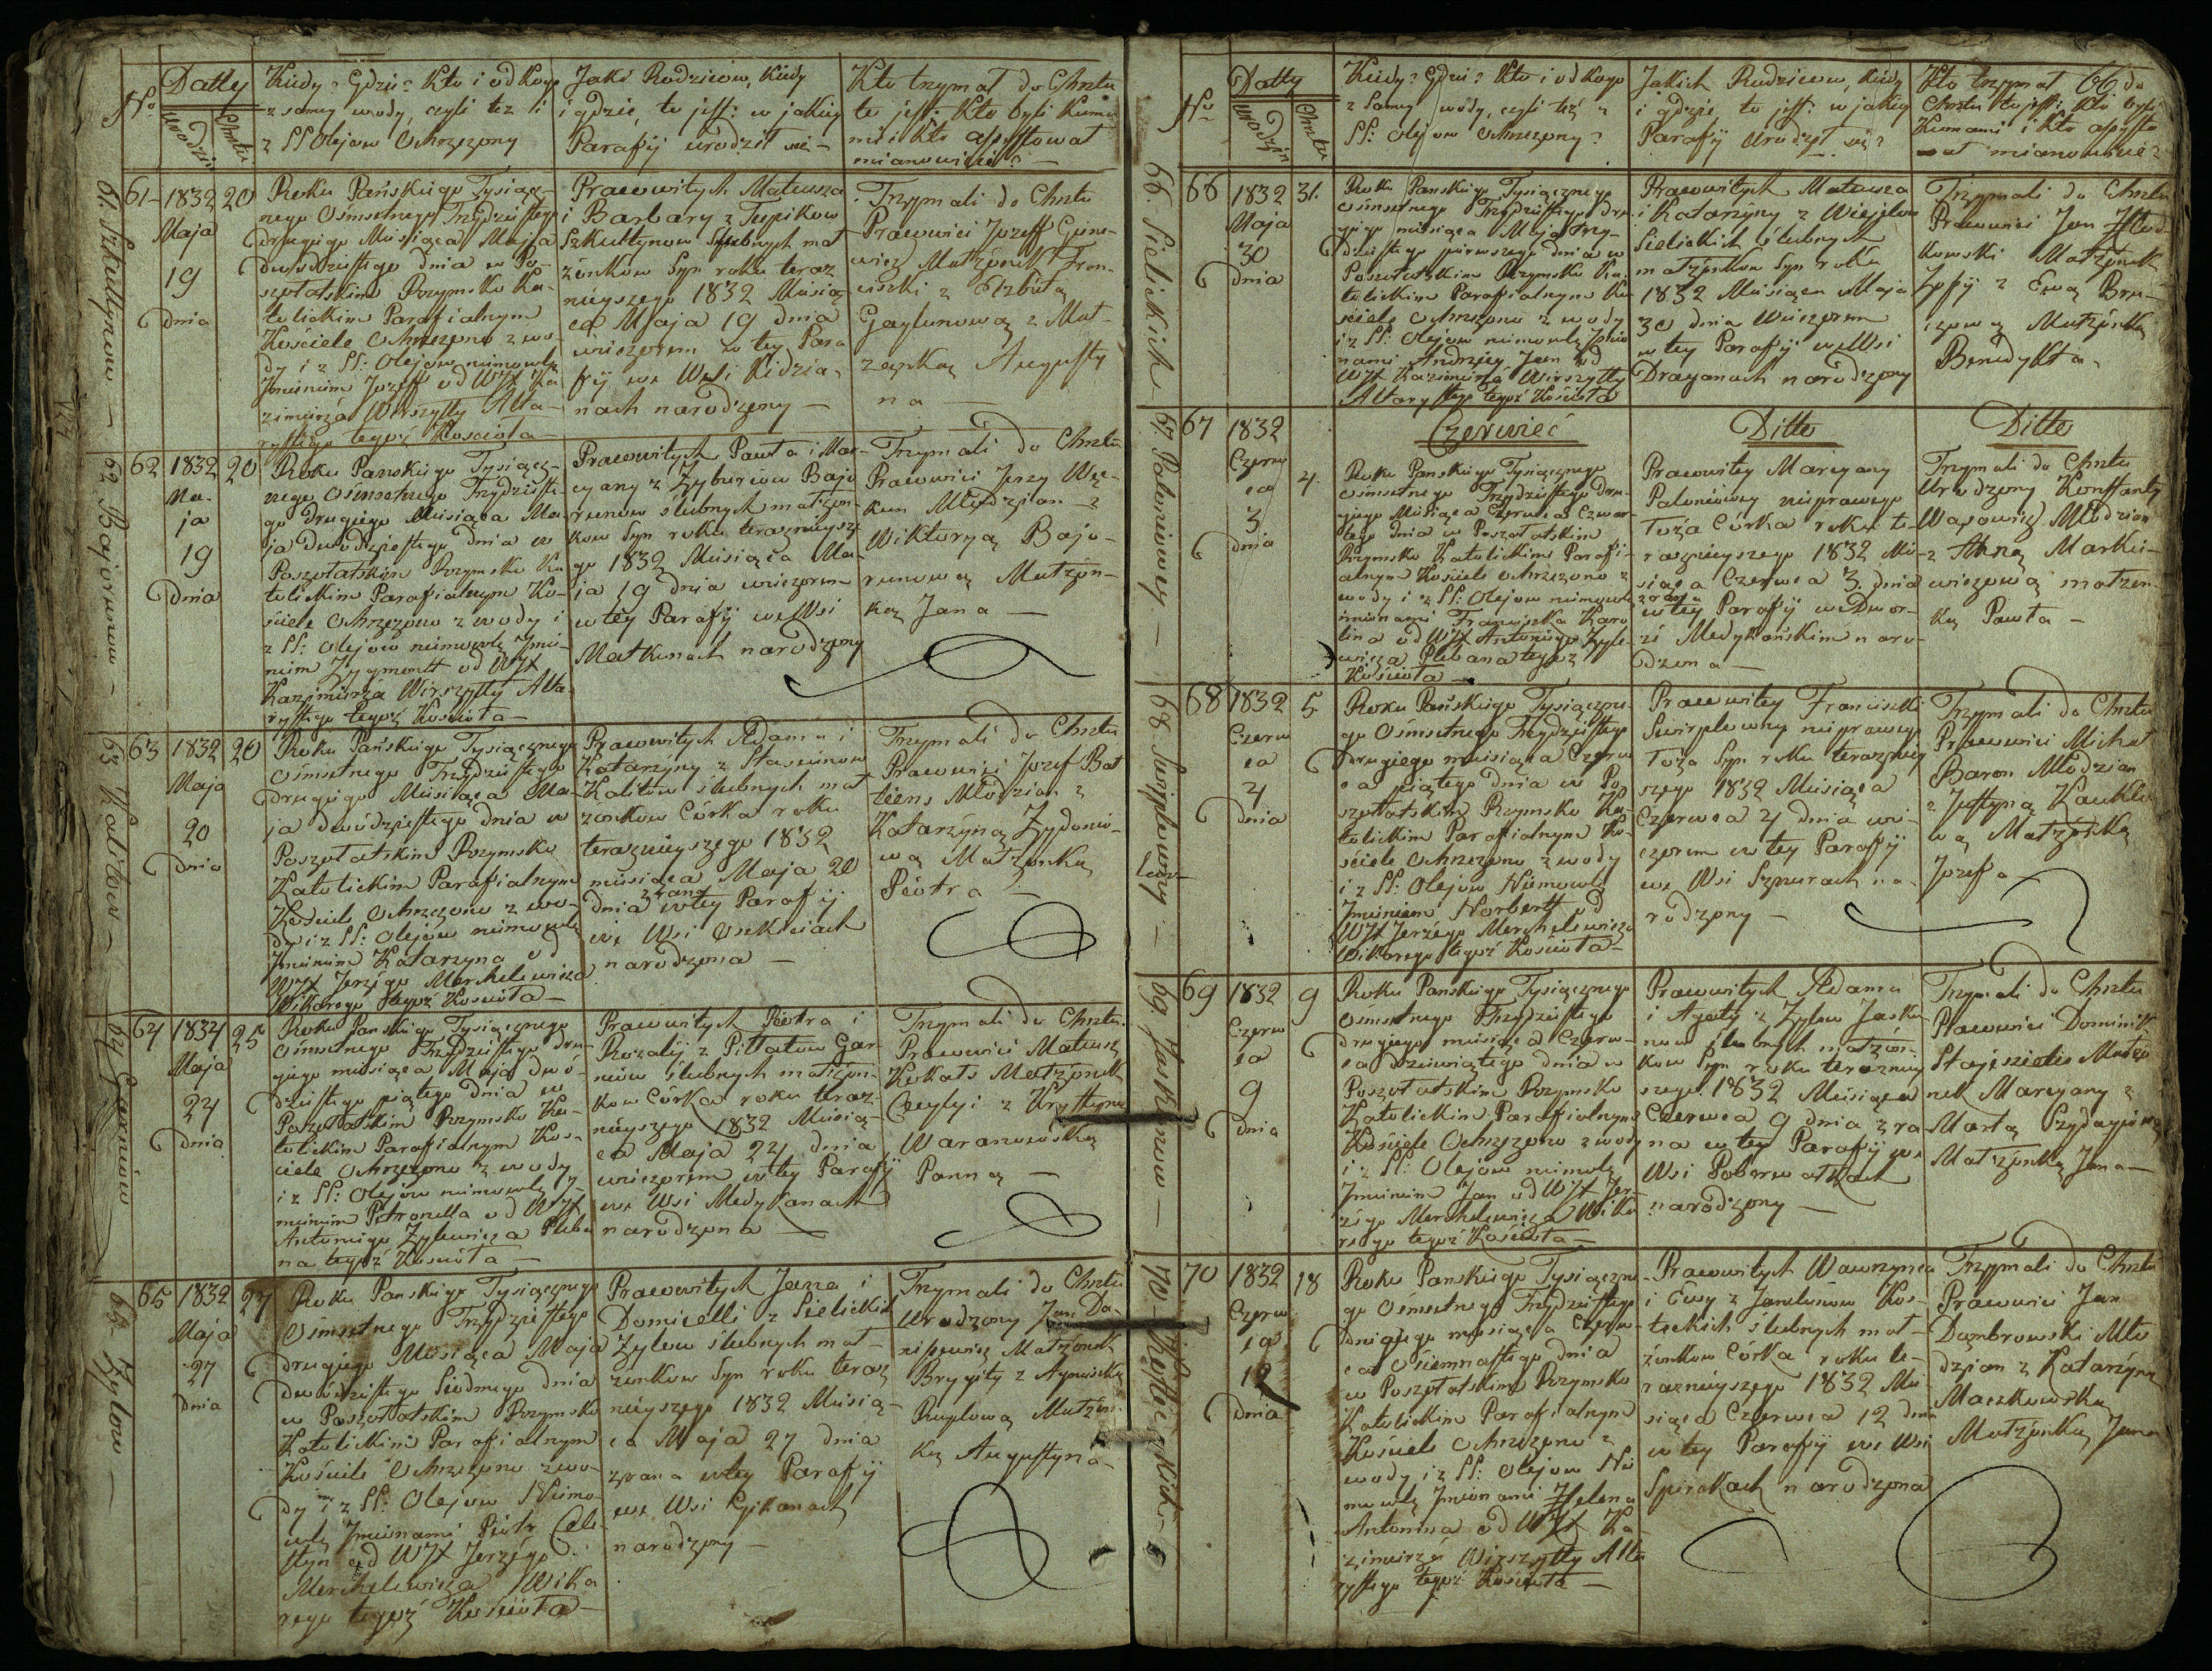 No
Datty
Urodzin
Chrztu
Kiedy? Gdzie? Kto i od kogo
z samey wody, czyli też i
z SS Olejow Ochrzczony
Jaki Rodziców, kiedy
i gdzie, to jest: w jakiey
Parafij urodził się
Kto trzymał do Chrztu
to jest, Kto byli Kuma-
mi i kto assystował
mianowicie?
61. Szkultynow
61
1832
Maja
19
dnia
20
Roku Pańskiego Tysiącz-
nego Ośmsetnego Trzydziestego
drugiego Miesiąca Maja
dwudziestego dnia w Po-
szołatskim Rzymsko Ka-
tolickim Parafialnym
Kościele Ochrzczono z wo-
dy i z SS: Olejow niemowlę
Jmieniem Jozeff od WJX Ka-
zimierza Wirszyłły Alta-
rystego tegoż Kościoła
Prawowitych Mateusza
i Barbary z Tupikow
Szkultynow Slubnych mał-
żonkow Syn roku teraz
nieyszego 1832 Miesią-
ca Maja 19 dnia
wieczorem w tey Para
fij we Wsi Kidzia-
nach narodzony
Trzymali do Chrztu
Prawowici Jozeff Gie-
wicz Małżonek Fran-
ciszki z Elżbietą
Gaylunową z Mał-
żonką Augusty
na
62 Bajorunow
62
1832
Ma-
ja
19
dnia
20
Roku Pańskiego Tysiącz-
nego Ośmsetnego Trzydzieste-
go drugiego Miesiąca Ma-
ja dwudziestego dnia w
Poszołatskim Rzymsko Ka-
tolickim Parafialnym Ko-
ściele Ochrzczono z wody i
z SS: Olejow niemowlę Jmie-
niem Zygmontt od WJX
Kazimierza Wirszyłły Alta-
rystego tegoż Kościoła
Prawowitych Pawła i Mar-
cyany z Zyburiow Bajo
runow ślubnych małżon-
kow Syn roku teraznieysze-
go 1832 Miesiąca Ma-
ja 19 dnia wieczorem
w tey Parafij we Wsi
Matkunach narodzony
Trzymali do Chrztu
Prawowici Jerzy Węc-
kun Młodzian z
Wiktoryą Bajo-
runową Małżon-
ką Jana
63 Kalitow
63
1832
Maja
20
dnia
20
Roku Pańskiego Tysiącznego
Ośmsetnego Trzydziestego
drugiego Miesiąca Ma-
ja dwudziestego dnia w
Poszołatskim Rzymsko
Katolickim Parafialnym
Kościele Ochrzczono z wo-
dy i z SS: Olejów niemowlę
Jmieniem Katarzyna od
WJX Jerzego Merchelewicza
Wikarego tegoż Kościoła
Prawowitych Adama i
Katarzyny z Stasciunow
Kalitow ślubnych mał
żonkow Córka roku
teraznieyszego 1832
miesiąca Maja 20
dnia zrana w tey Parafij
we Wsi Oszkiciach
narodzona
Trzymali do Chrztu
Prawowici Jozef Bał
tiens Młodzian z
Katarzyną Zydonio-
wą Małżonką
Piotra
64 Garniow
64
1834
Maja
24
dnia
25
Roku Pańskiego Tysiącznego
Ośmsetnego Trzydziestego dru-
giego miesiąca Maja dwu-
dziestego piątego dnia w
Poszołatskim Rzymsko Ka-
tolickim Parafialnym Koś-
ciele Ochrzczono z wody
i z SS: Olejów niemowlę J-
mieniem Petronella od WJX
Antoniego Zylewicza Pleba
na tegoż Kościoła
Prawowitych Piotra i
Rozalij z Pittatow Gar
niow ślubnych małżon-
kow Córka roku teraz-
nieyszego 1832 Miesią-
ca Maja 24 dnia
wieczorem w tey Parafij
we Wsi Medykanach
narodzona
Trzymali do Chrztu
Prawowici Mateusz
Kukats Małżonek
Cecylyi z Krystyną
Waranowską
Panną
65 Zylow
65
1832
Maja
27
dnia
27
Roku Pańskiego Tysiącznego
Ośmsetnego Trzydziestego
drugiego Miesiąca Maja
dwudziestego Siodmego dnia
w Poszołatskim Rzymsko
Katolickim Parafialnym
Kościele Ochrzczono z wo-
dy i z SS: Olejow Niemo-
wlę Jmionami Piotr Cele-
styn od WJX Jerzego
Merchelewicza Wika
rego tegoż Kościoła
Prawowitych Jana i
Domicelli z Sielickich
Zylow ślubnych mał-
żonkow Syn roku teraz
nieyszego 1832 Miesią-
ca Maja 27 dnia
zrana w tey Parafij
we Wsi Gikanach
narodzony
Trzymali do Chrztu
Urodzony Jan Da-
nisewicz Małżonek
Brygity z Agnieszką
Ruplową Małżon-
ką Augustyna
No
Datty
Urodzin
Chrztu
Kiedy? Gdzie? Kto i od Kogo
z Samey wody, czyli też z
SS: Olejow Ochrzczony?
Jakich Rodzicow, kiedy
i gdzie, to jest: w jakiey
Parafij Urodził się?
Kto trzymał do
Chrztu to jest: Kto byli
Kumami i Kto assysto
wał mianowicie?
66.
66. Sielickich
66
1832
Maja
30
dnia
31.
Roku Pańskiego Tysiącznego
Ośmsetnego Trzydziestego dru-
giego miesiąca Maja trzy-
dziestego pierwszego dnia w
Poszołatskim Rzymsko Ka-
tolickim Parafialnym Ko-
ściele Ochrzczono z wody
i z SS: Olejow niemowlę Jmio
nami Andrzey Jan od
WJX Kazimierza Wirszyłły
Altarystego tegoż Kościoła
Prawowitych Mateusza
i Katarzyny z Wieyelow
Sielickich ślubnych
małżonkow Syn roku
1832 Miesiąca Maja
30 dnia Wieczorem
w tey Parafij we Wsi
Draganach narodzony
Trzymali do Chrztu
Prawowici Jan Hład-
kowski Małżonek
Zofij z Ewą Bru-
żową Małżonką
Benedykta
67. Paloniowey
67
1832
Czerw
ca
3
dnia
4
Czerwiec
Roku Pańskiego Tysiącznego
Ośmsetnego Trzydziestego dru-
giego Miesiąca Czerwca Czwar-
tego dnia w Poszołatskim
Rzymsko Katolickim Parafi-
alnym Kościele Ochrzczono z
wody i z SS: Olejow niemowlę
imionami Franciszka Karo
lina od WJX Antoniego Zyle-
wicza Plebana tegoż
Kościoła
Ditto
Prawowitey Maryany
Paloniowey nieprawego
Łoża Córka roku te-
raznieyszego 1832 Mie-
siąca Czerwca 3 dnia
zrana
w tey Parafij we Dwor-
ze Medykańskim naro-
dzona
Ditto
Trzymali do Chrztu
Urodzony Konstanty
Wasowicz Młodzian
z Anną Markie-
wiczową małżon-
ką Pawła
68. Swirplewny
68
1832
Czerw
ca
4
dnia
5
Roku Pańskiego Tysiączne-
go Ośmsetnego Trzydziestego
drugiego miesiąca Czerw
ca piątego dnia w Po
szołatskim Rzymsko Ka-
tolickim Parafialnym Ko-
ściele Ochrzczono z wody
i z SS: Olejow Niemowlę
Jmieniem Norbertt od
WJX Jerzego Merchelewicza
Wikarego tegoż Kościoła
Prawowitey Franciszki
Swirplewny nieprawego
Łoża Syn roku terazniey
szego 1832 Miesiąca
Czerwca 4 dnia wie-
czorem w tey Parafij
we Wsi Sznurach na-
rodzony
Trzymali do Chrztu
Prawowici Michał
Baron Młodzian
z Justyną Kaukle-
wą Małżonką
Jozefa
69 Jaskunow
69
1832
Czerw
ca
9
dnia
9
Roku Pańskiego Tysiącznego
Ośmsetnego Trzydziestego
drugiego miesiąca Czerw-
ca dziewiątego dnia w
Poszołatskim Rzymsko
Katolickim Parafialnym
Kościele Ochrzczono z wody
i z SS: Olejow niemowlę
Jmieniem Jan od WJX Jer-
zego Merchelewicza Wika
rego tegoż Kościoła
Prawowitych Adama
i Agaty z Zylow Jasku
now ślubnych małżon-
kow Syn roku terazniey
szego 1832 Miesiąca
Czerwca 9 dnia zra
na w tey Parafij we
Wsi Poberwałkach
narodzony
Trzymali do Chrztu
Prawowici Dominik
Małżo
nek Maryany z
Martą
Małżonką Jana
70
1832
Czerw
ca
12
dnia
18
Roku Pańskiego Tysiączne-
go Ośmsetnego Trzydziestego
drugiego miesiąca Czerw-
ca Osiemnastego dnia
w Poszołatskim Rzymsko
Katolickim Parafialnym
Kościele Ochrzczono z
wody i z SS: Olejow Nie
mowlę Jmionami Helena
Antonina od WJX Ka-
zimierza Wirszyłły Alta
rystego tegoż Kościoła
Prawowitych Wawrzynca
i Ewy z Jandunow Kos-
teckich ślubnych mał-
żonkow Córka roku te-
raznieyszego 1832 Mie
siąca Czerwca 12 dnia
w tey Parafij we Wsi
Spirakach narodzona
Trzymali do Chrztu
Prawowici Jan
Dąmbrowski Mło
dzian z Katarzyną
Maczkowską
Małżonką Jana